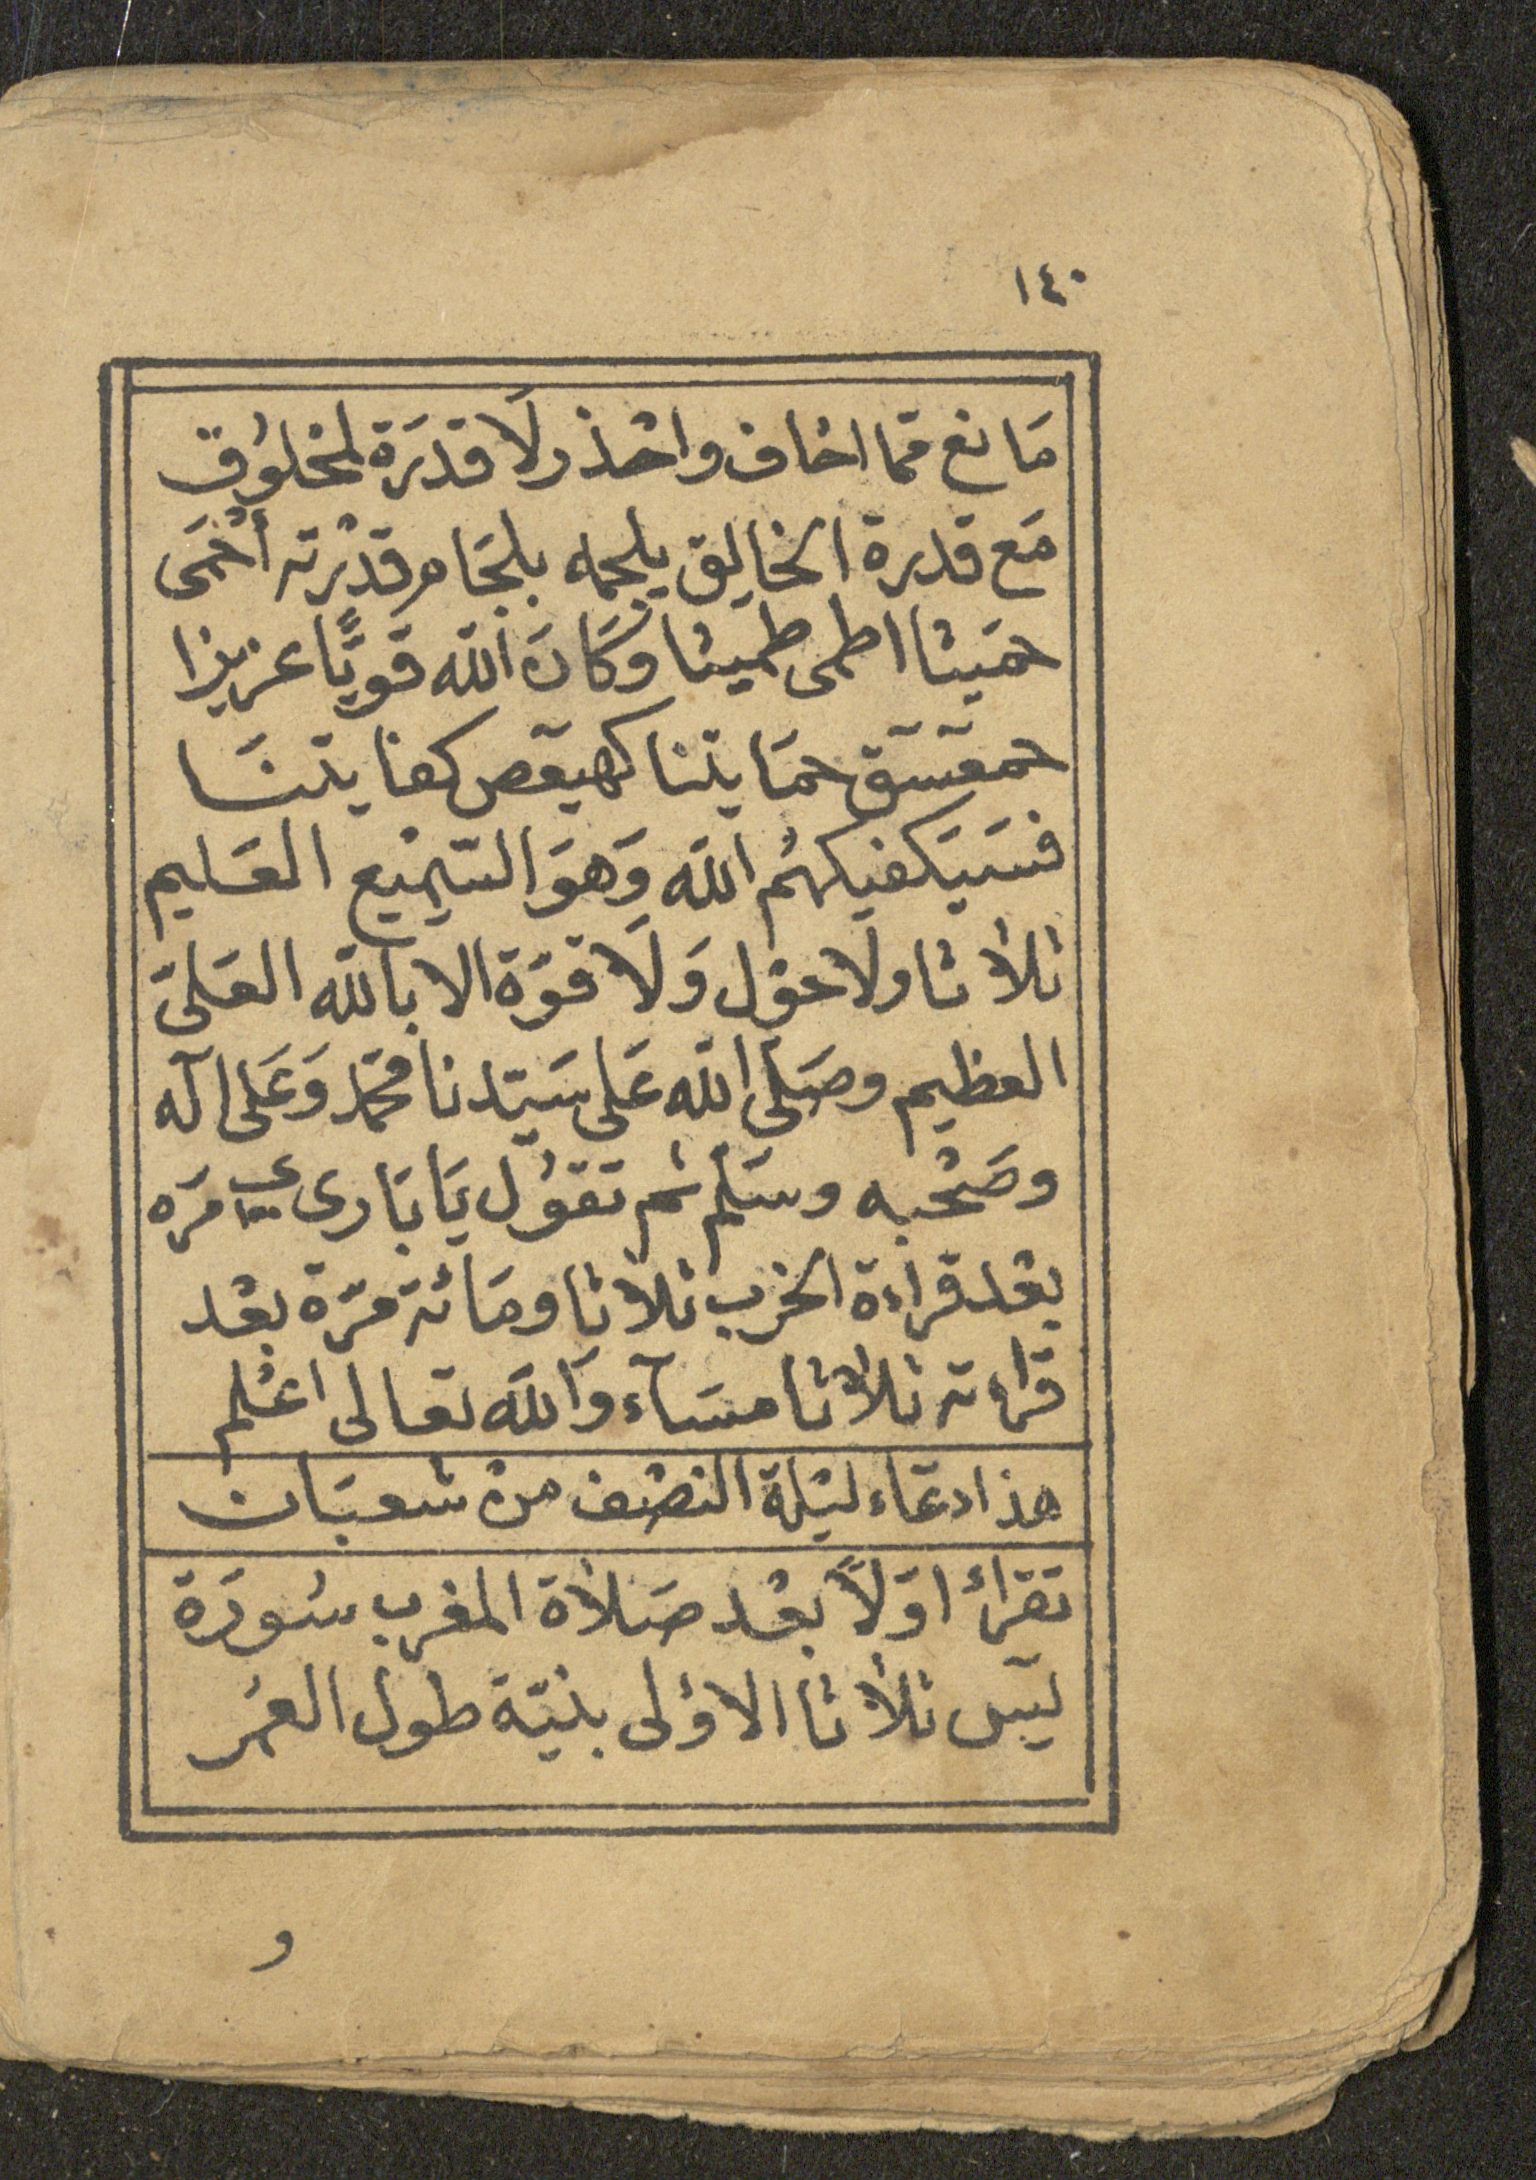 ١٤٠
مَانع ممّا اخاف واحْذر لَا قدرَة لمخلوُق
مَع قدرة الخالِق يلجمه بلجَام قدْرته أحْمَى
حمَيثا اطمى طميثا وَكَانَ الله قويًّا عزيزا
حمعٓسٓقٓ حمَايتنا كهيعٓصٓ كفايتنَا
فسَيَكفيكهُم الله وَهوَ السَّمِيْع العَليم
ثلاثا ولَا حوْل وَلَا قوّة الا بالله العَلىّ
العظيم وصَلّى الله عَلى سَيّدنا محمّد وَعَلى آله
وصَحْبه وسَلم ثم تقوُل يَا بَارى مَرّه
بعْد قراءة الحزب ثلاثا ومَائة مرّة بعْد
قراءته ثلاثا مسَآء وَالله تعالى اعْلم
هذا دعَاء ليْلة النصْف منْ شعبَان
تقرأ اوّلاً بعْد صَلاة المغرب سُورَة
يٓس ثلاثا الاوْلى بنيّة طول العمُر
و